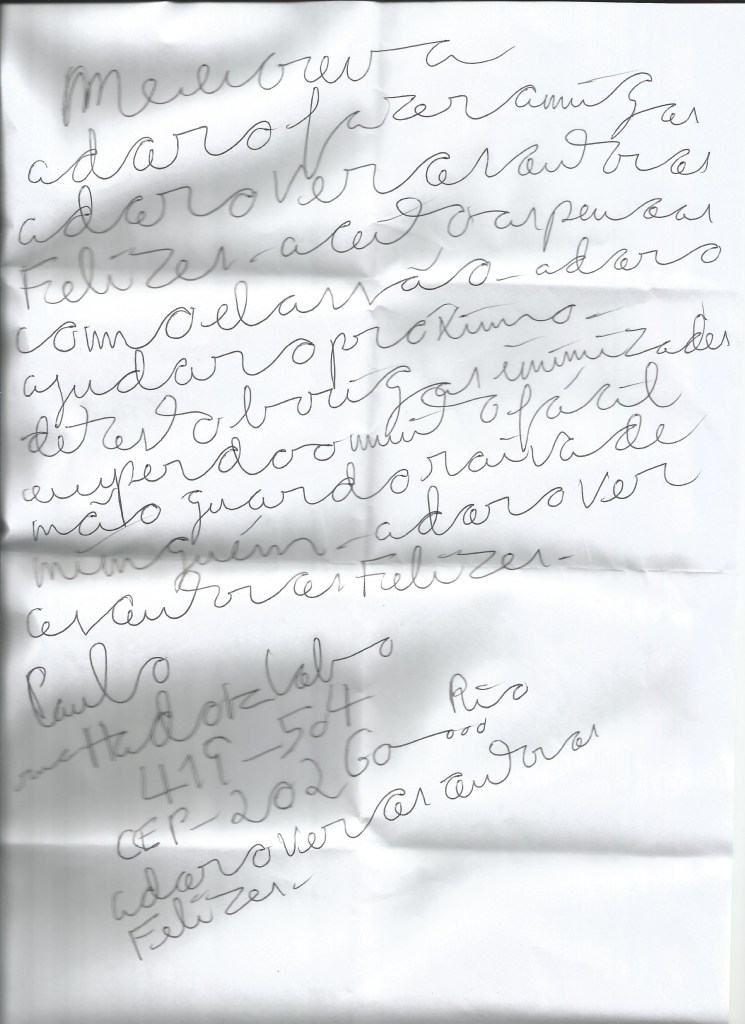 Me escreva
adoro fazer amigas
adoro ver as outras
Felizes - aceito as pessoas
como elas são - adoro
ajudar o próximo -
detesto brigas inimizades
eu perdoo muito fácil
não guardo raiva de
ninguém - adoro ver
as outras Felizes -
Paulo
419-504
Rio
CEP-20260-000
adoro ver as outras
Felizes -